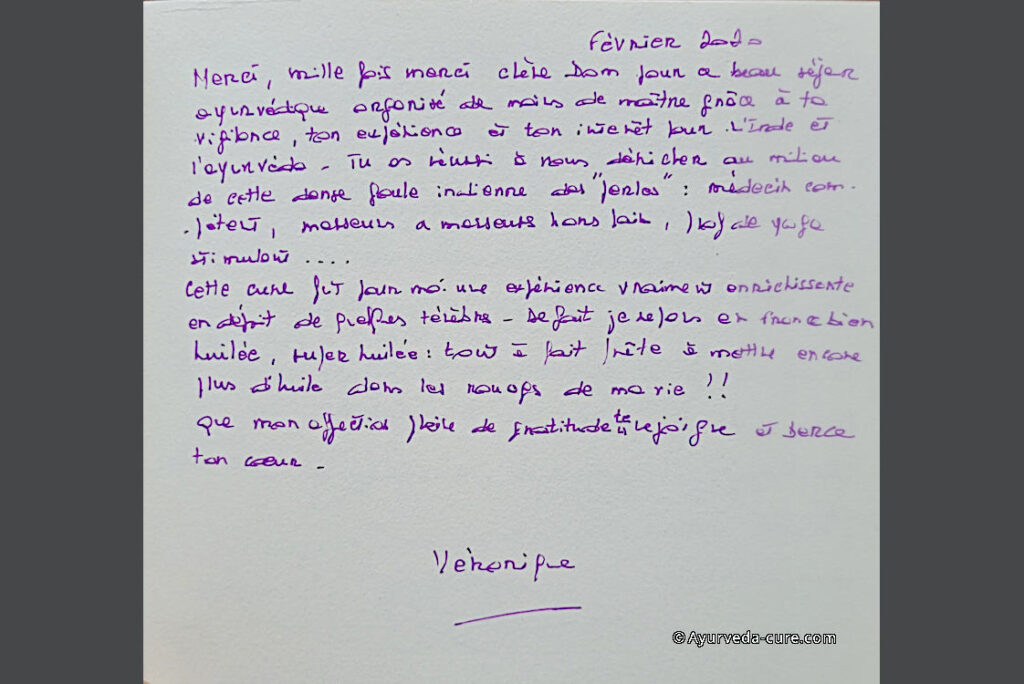 Février 2020
Merci, mille fois merci chère Dom pour ce beau séjour
ayurvédique organisé de mains de maître grâce à ta
vigilance, ton expérience et ton intérêt pour l'Inde et
l'ayurvéda - Tu as réussi à nous dénicher au milieu
de cette dense foule indienne des "perles" : médecin com-
-pétent, masseurs et masseurs hors pair, prof de yoga
stimulant ....
Cette cure fut pour moi une expérience vraiment enrichissante
en dépit de - De fait je repars en France bien
huilée, super huilée : tout à fait prête à mettre encore
plus d'huile dans les rouages de ma vie !!
Que mon affection pleine de gratitude te rejoigne et berce
ton cœur -
Véronique
©Ayurveda-cure.com